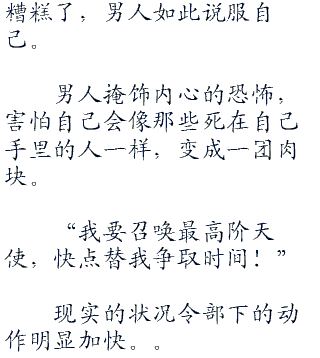 糟糕了，男人如此说服自
己。
男人掩饰内心的恐怖，
害怕自己会像那些死在自己
手里的人一样，变成一团肉
块。
“我要召唤最高阶天
使，快点替我争取时间！”
现实的状况令部下的动
作明显加快。。